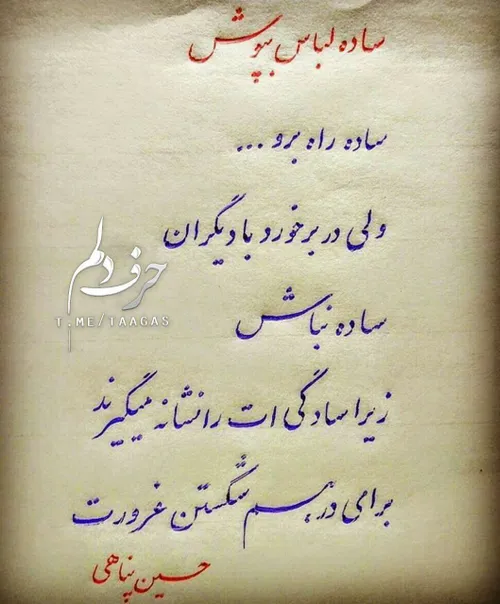 ساده لباس بپوش
ساده راه برو ...
ولی در برخورد با دیگران
ساده نباش
زیرا سادگی ات را نشانه میگیرند
برای درهم شکستن غرورت
حسین پناهی
حرف دلم
T.ME/TAAGAS